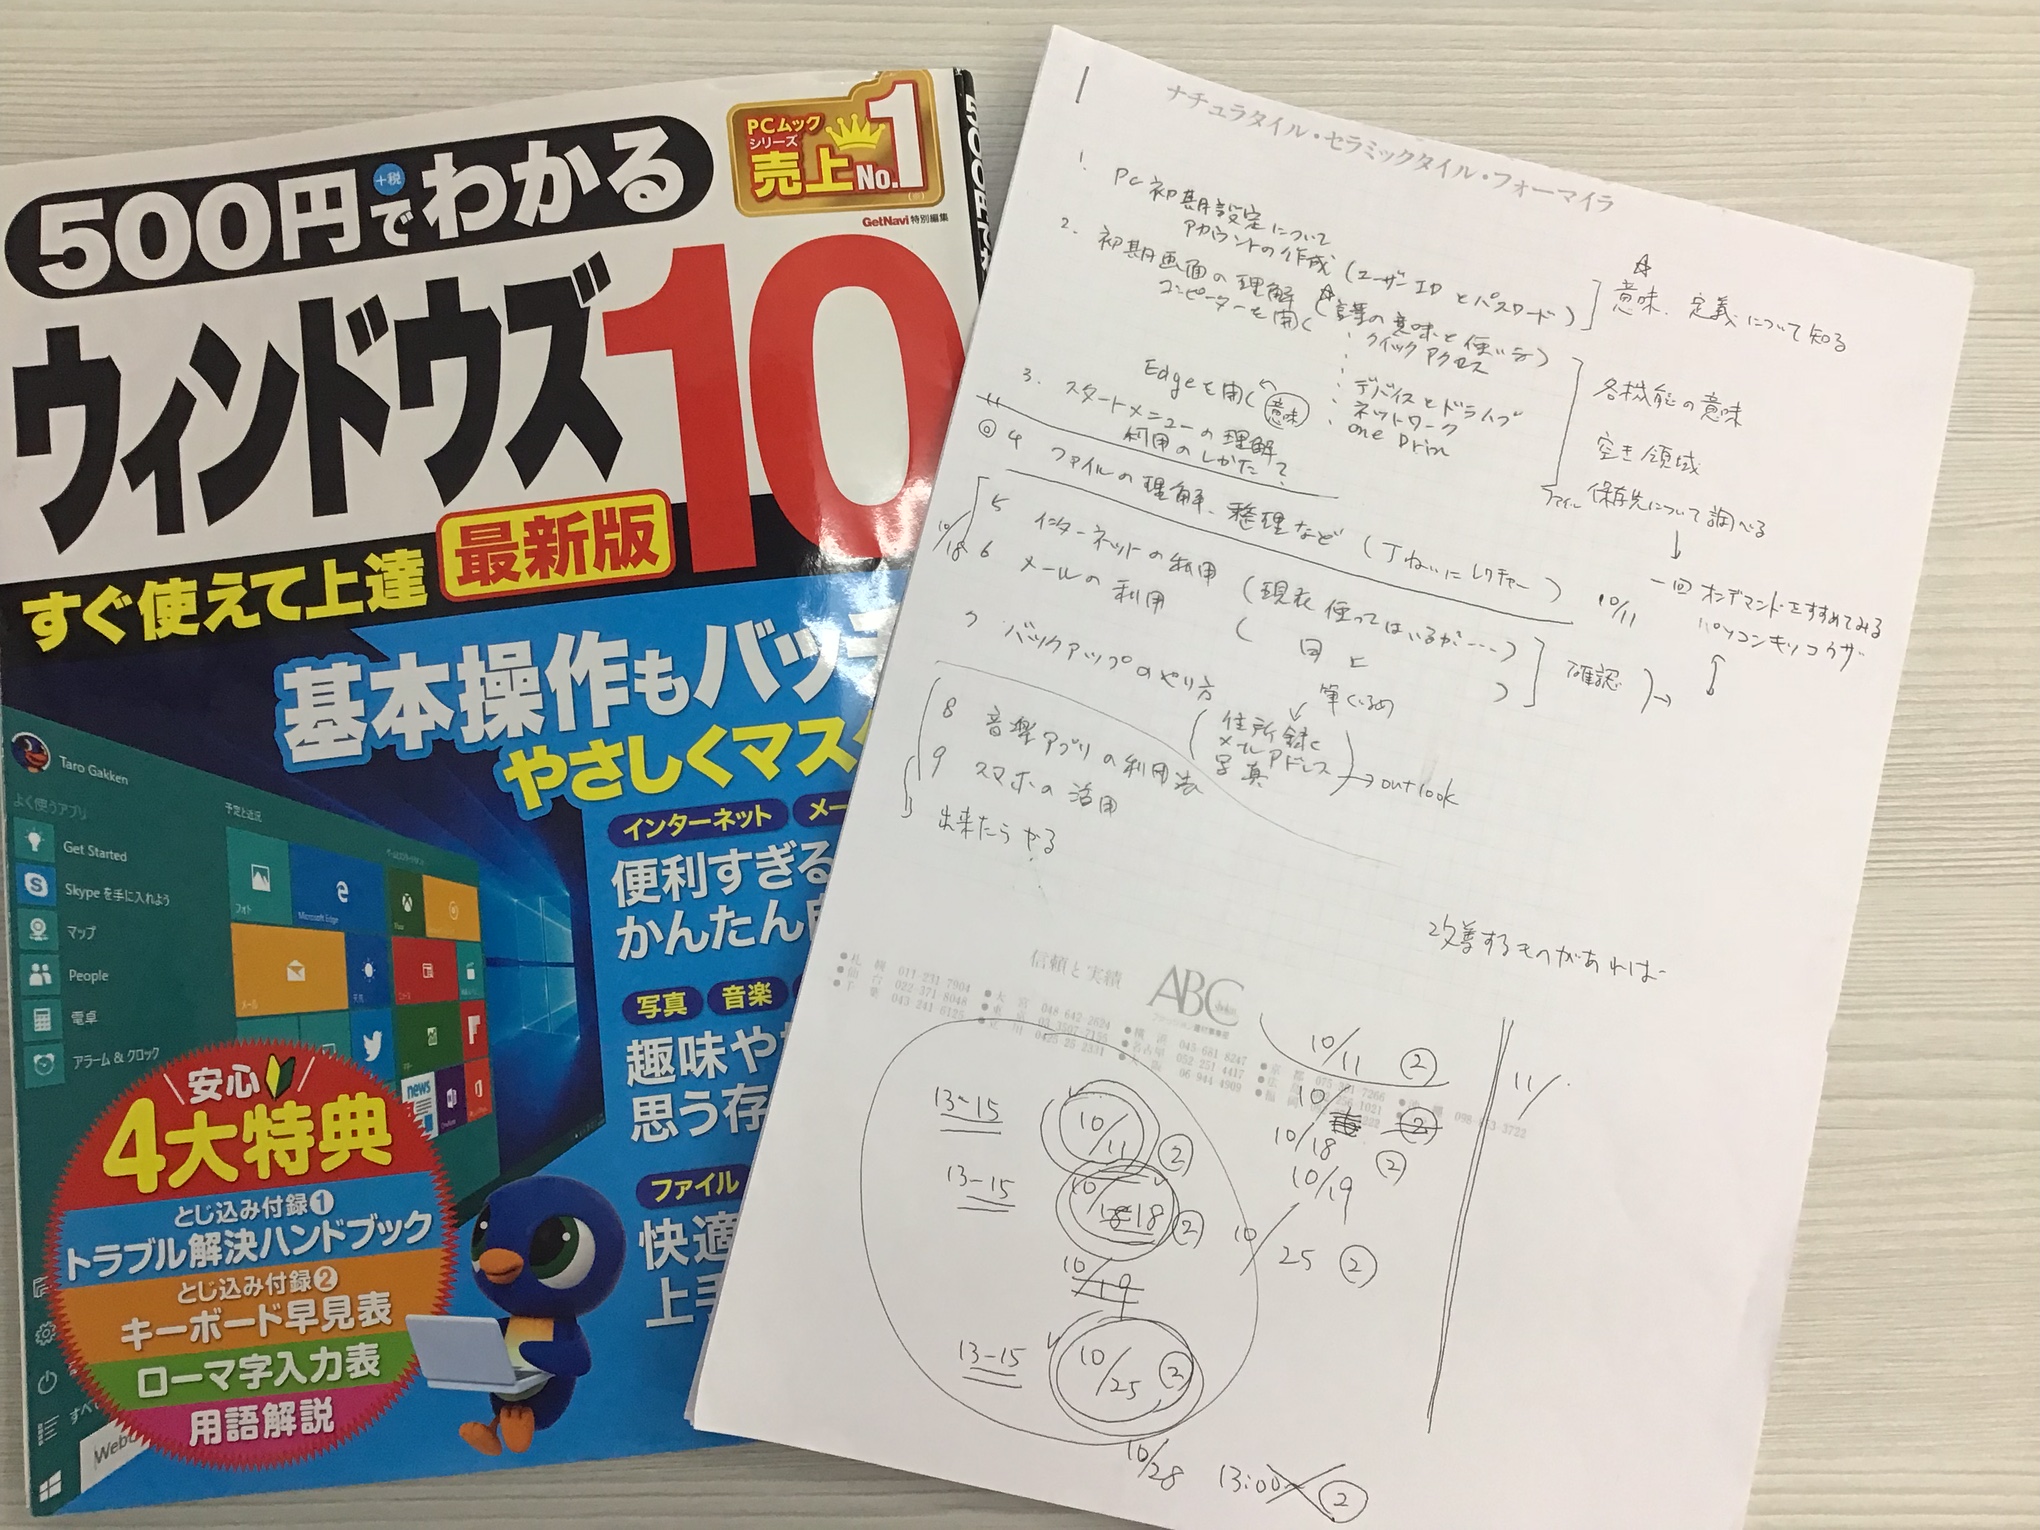 500円+税でわかる
PCムック
シリーズ
売上No.1
GetNavi特別編集
ウィンドウズ10
最新版
すぐ使えて上達
基本操作もバッチ
やさしくマスタ
インターネット メー
便利すぎる
かんたん
写真 音楽
趣味や
思う存
ファイル
快適
上手
Taro Gakken
よく使うアプリ
予定と近況
Get Started
Skype を手に入れよう
マップ
People
電卓
アラーム & クロック
フォト
Microsoft Edge
メール
news
安心
4大特典
とじ込み付録①
トラブル解決ハンドブック
とじ込み付録②
キーボード早見表
ローマ字入力表
用語解説
ナチュラタイル・セラミックタイル・フォーマイラ
1. PC初期設定について
アカウントの作成 (ユーザーIDとパスワード)
☆
意味、定義について知る
2. 初期画面の理解 (☆言葉の意味と使い方)
コンピーターを開く
・クイックアクセス
・デバイスとドライブ
・ネットワーク
・One Drive
各機能の意味
空き領域
ファイル 保存先について調べる
↓
一回 オンデマンドをすすめてみる
Edgeを開く 意味
3. スタートメニューの理解
利用のしかた
◎4 ファイルの理解、整理など (丁ねいにレクチャー) 10/11
10/18
5 インターネットの利用 (現在使ってはいるが----)
6 メールの利用 ( 同上 )
確認
7 バックアップのやり方
筆ぐるめ
住所録
メールアドレス
写真
→ outlook
8 音楽アプリの利用法
9 スマホの活用
出来たらやる
改善するものがあれば
信頼と実績 ABC
●札幌 011-231 7904
●仙台 022-371 8048
●千葉 043 241 6125
●大宮 048 642 2624
●東京 03-3507-7155
●立川 0425 25 2331
●横浜 045-681 8247
●名古屋 052-251 4417
●大阪 06 944 4909
10/11 ②
10/18 ②
10/19
10/25 ②
11/
13-15 10/11 ②
13-15 10/18 18 ②
10/19
13-15 10/25 ②
10/28 13:00 ②